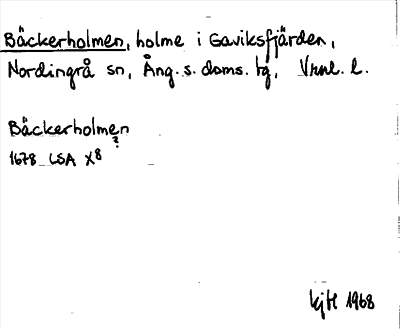 Bäckerholmen, holme i Gaviksfjärden,
Nordingrå sn, Ång. s. doms. tg, Vrnl. l.
Bäckerholmen
?
1678 LSA X8
kjH 1968